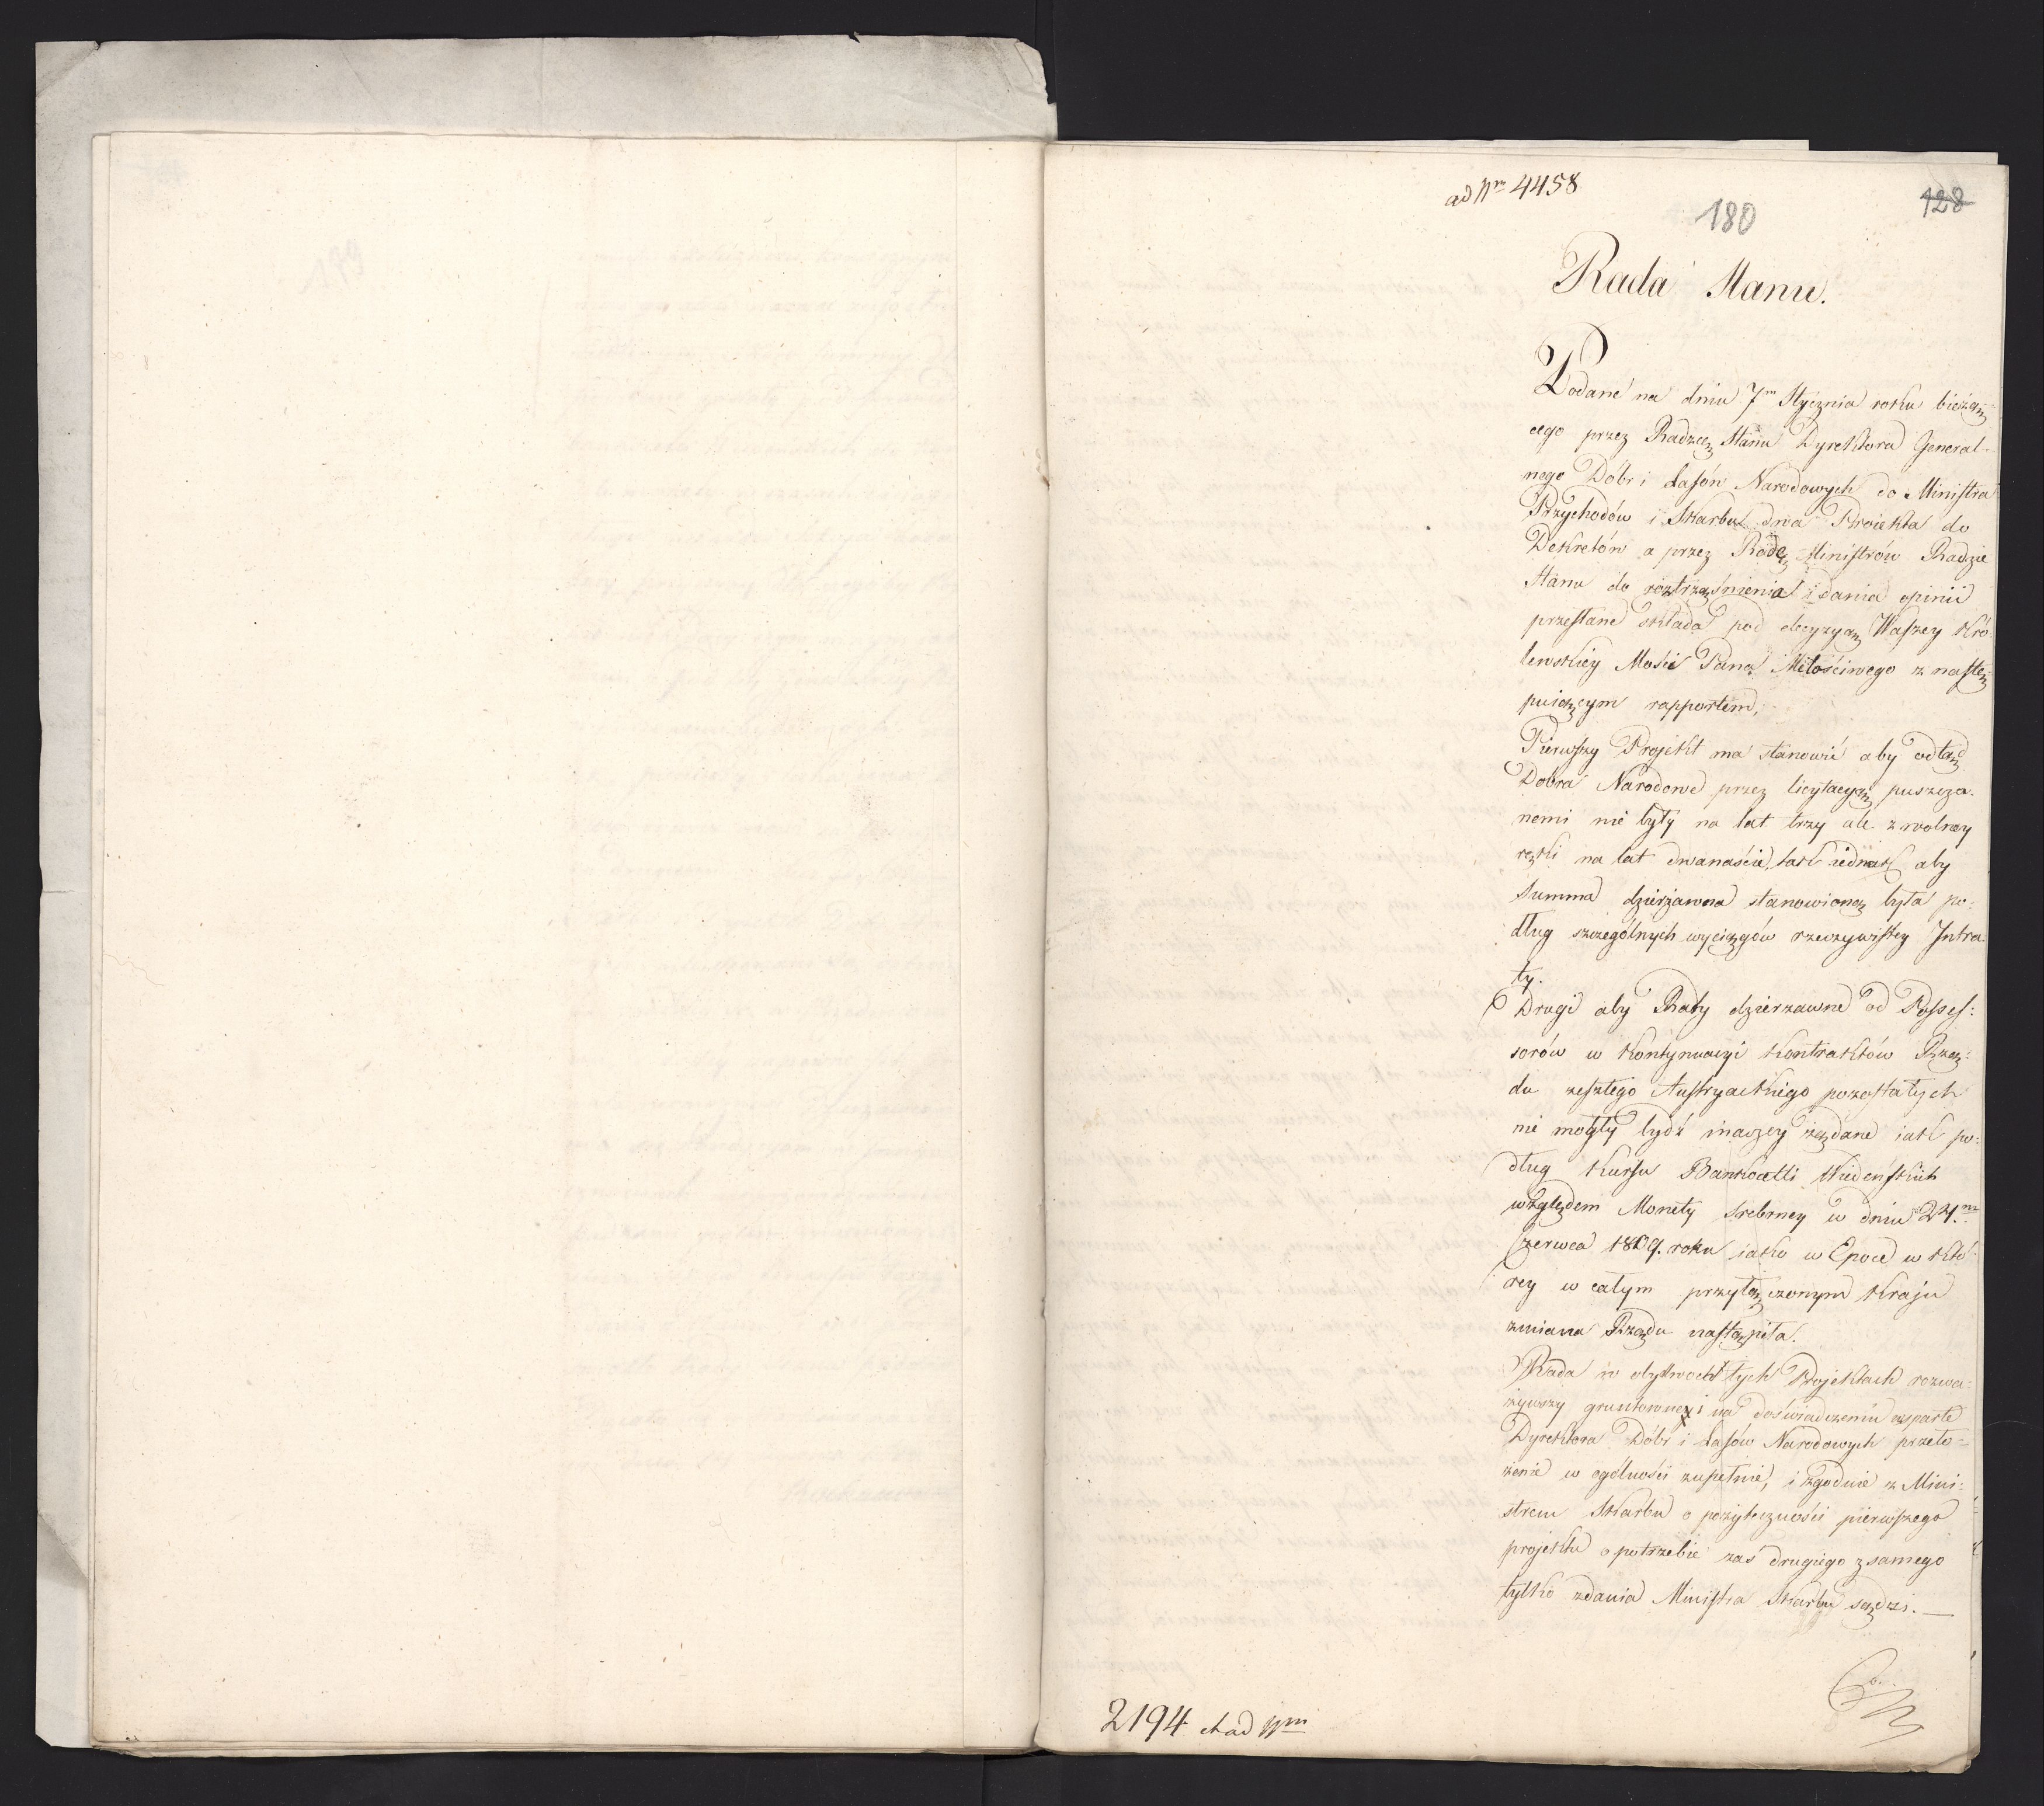 ad Nrm 4458
180
128
Rada Stanu.
Podane na dniu 7m Stycznia roku bieżą=
cego przez Radzcę Stanu Dyrektora General-
nego Dóbr i Lasów Narodowych do Ministra
Przychodów i Skarbu dwa Proiekta do
Dekretów a przez Radę Ministrów Radzie
Stanu do roztrząśnienia i dania opinii
przesłane składa pod decyzyą Waszey Kró-
lewskiey Mości Pana Miłościwego z nastę=
puiącym rapportem,
Pierwszy Projekt ma stanowić aby odtąd
Dobra Narodowe przez licytacyą puszcza-
nemi nie były na lat trzy ale z wolney
ręki na lat dwanaście, tak iednak aby
Summa dzierżawna stanowioną była po-
dług szczególnych wyciągów rzeczywistey Intra-
ty.
Drugi aby Raty dzierzawne od Posses=
sorów w kontynuacyi kontraktów Rzą=
du zeszłego Austryackiego pozostałych
nie mogły bydź inaczey żądane iak po=
dług Kursu Bankocetli Wiedeńskich
względem Monety srebrney w dniu 24.m
Czerwca 1809. roku iako w Epoce w któ-
rey w całym przyłączonym Kraju
zmiana Rządu nastąpiła.
Rada w obydwoch tych Projektach rozwa=
żywszy gruntowne i na doświadczeniu wsparte
Dyrektora Dóbr i Lasów Narodowych przeło=
żenie w ogólności zupełnie, i zgodnie z Mini=
strem Skarbu o pożyteczności pierwszego
projektu o potrzebie zaś drugiego z samego
tylko zdania Ministra Skarbu sądzi. —
2194 et ad Nrm